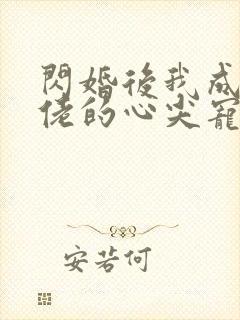 閃婚後我成
佬的心尖寵
安若何